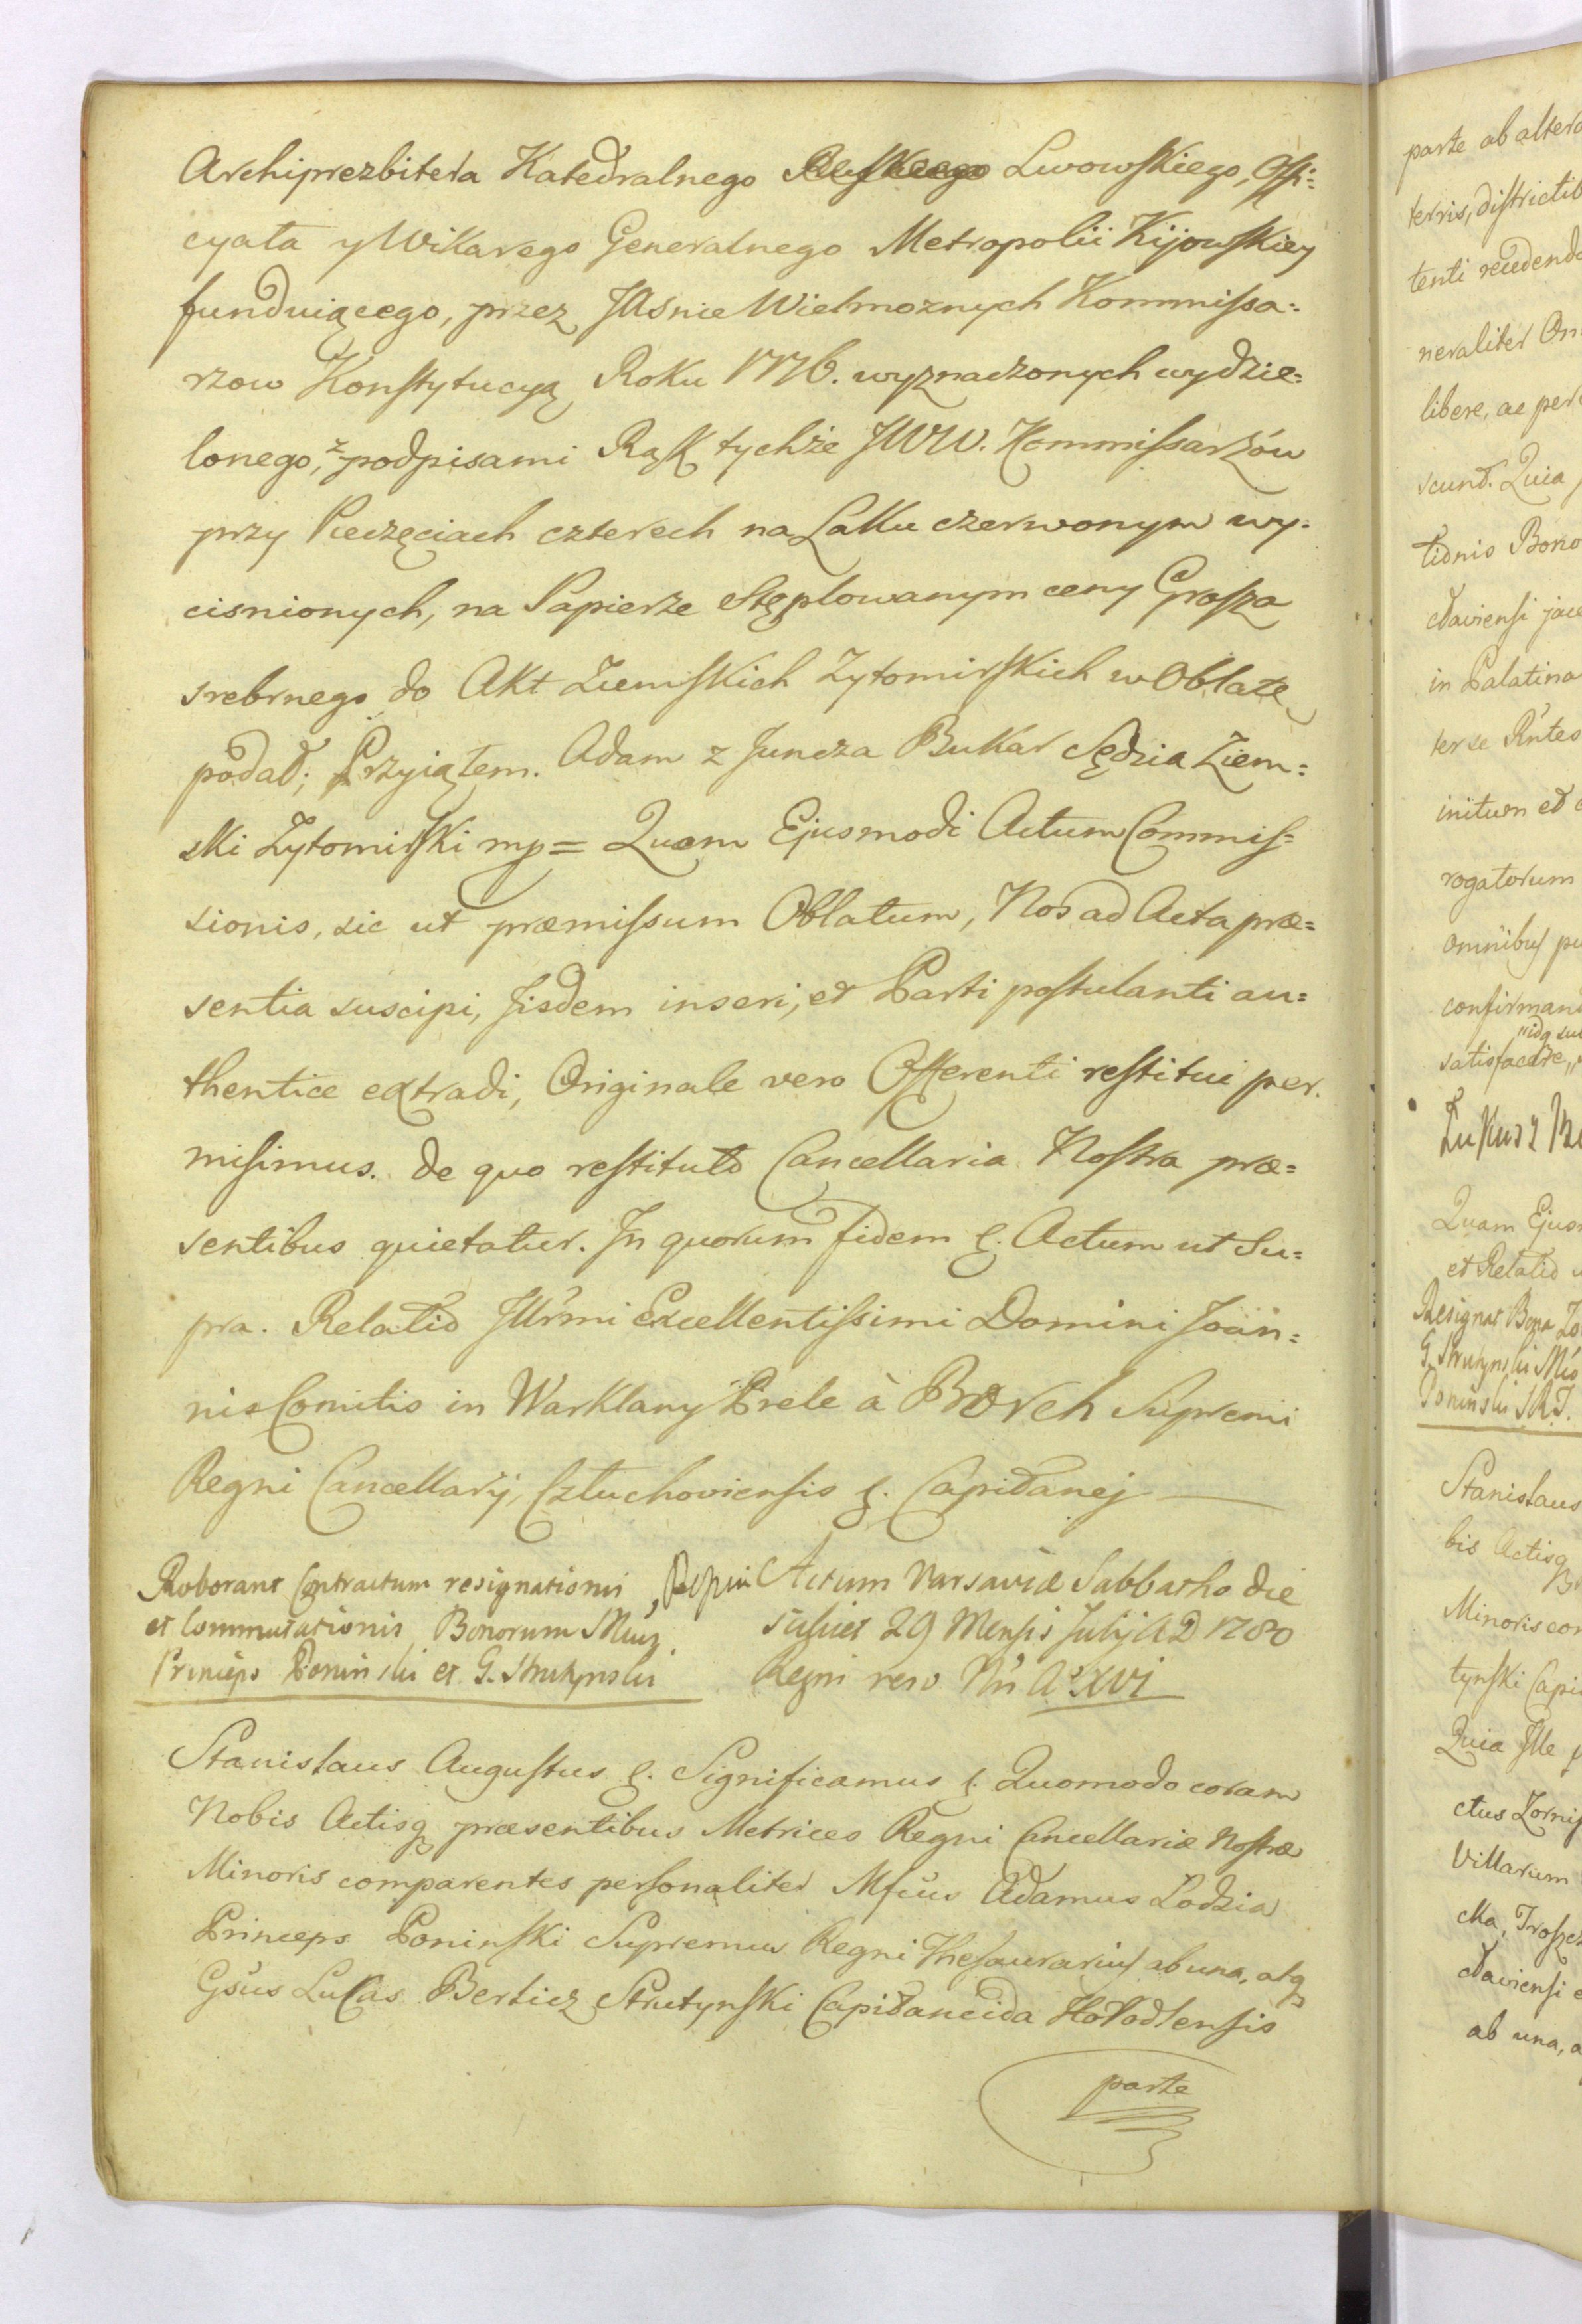 Archiprezbitera Katedralnego Ruskiego Lwowskiego, Offi:
cyała y Wikarego Generalnego Metropolii Kijowskiey
funduiącego, przez JAsnie Wielmoznych Kommissa:
rzow Konstytucyą Roku 1776. wyznaczonych wydzie:
lonego, z podpisami Rąk tychże JWW. Kommissarzów
przy Pieczęciach czterech na Laku czerwonym wy:
cisnionych, na Papierze Stęplowanym ceny Grosza
srebrnego do Akt Ziemskich Zytomirskich w Oblatę
podał; Przyiąłem. Adam z Juncza Bukar Sędzia Ziem:
ski Zytomirski mp = Quam Ejusmodi Actum Commis:
sionis, sic ut præmissum Oblatum, Nos ad Acta præ:
sentia suscipi, Jisdem inseri, et Parti postulanti au:
thentice extradi, Originale vero Offerenti restitui per.
misimus. de quo restituto Cancellaria Nostra præ:
sentibus quietatur. Jn quorum fidem &. Actum ut Su:
pra. Relatio Jllrmi Excellentissimi Domini Joan:
nis Comitis in Warklany Prele à Borch Supremi
Regni Cancellarij, Człuchoviensis &. Capitanej
Roborant Contractum resignationis
et Commutationis Bonorum Mius
Princeps Poninski et G. Strutynski
Actum Varsaviæ Sabbatho die
scilicet 29 Mensis Julij AD 1780
Regni vero Nri Ao XVI
Stanislaus Augustus &. Significamus &. Quomodo coram
Nobis Actisq præsentibus Metrices Regni Cancellariæ Nostræ
Minoris comparentes personaliter Mfcus Adamus Lodzia
Princeps Poninski Supremus Regni Thesaurarius ab una, atq
Gsus Lucas Berlicz Strutynski Capitaneida
parte
parte ab altera
neraliter
libere, ac
scund. Quia
in Palatina
initum et
rogatorum
omnibus
Quam
et Relatio
Resignat Bona
G. Strutynski
Poninski
Stanislaus
bis Actisq
Minoris
tynski
Quia Jlle
Villarum
ab una,